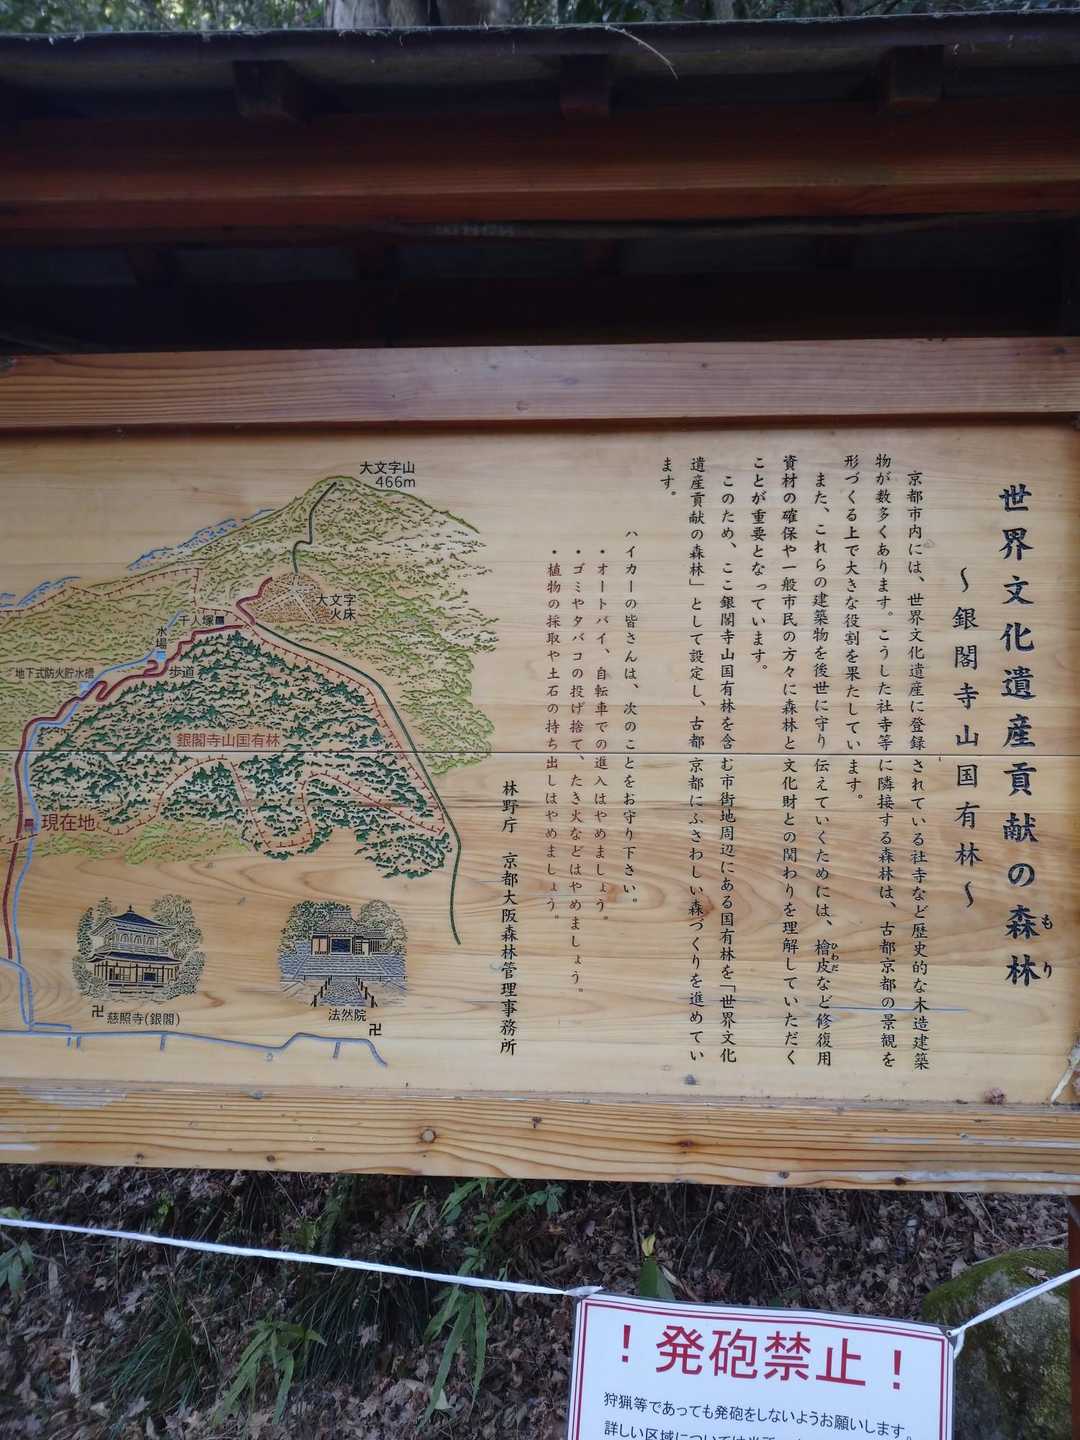 世界文化遺産貢献の森林
もり
～銀閣寺山国有林～
京都市内には、世界文化遺産に登録されている社寺など歴史的な木造建築
物が数多くあります。こうした社寺等に隣接する森林は、古都京都の景観を
形づくる上で大きな役割を果たしています。
また、これらの建築物を後世に守り伝えていくためには、檜皮など修復用
ひわだ
資材の確保や一般市民の方々に森林と文化財との関わりを理解していただく
ことが重要となっています。
このため、ここ銀閣寺山国有林を含む市街地周辺にある国有林を「世界文化
遺産貢献の森林」として設定し、古都京都にふさわしい森づくりを進めてい
ます。
ハイカーの皆さんは、次のことをお守り下さい。
・オートバイ、自転車での進入はやめましょう。
・ゴミやタバコの投げ捨て、たき火などはやめましょう。
・植物の採取や土石の持ち出しはやめましょう。
林野庁 京都大阪森林管理事務所
大文字山
466m
大文字
火床
千人塚
水場
地下式防火貯水槽
歩道
銀閣寺山国有林
現在地
卍 慈照寺(銀閣)
法然院
卍
！発砲禁止！
狩猟等であっても発砲をしないようお願いします。
詳しい区域については当